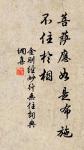 菩薩應如是布施
不住於相
金剛經妙行無住詞典
偶書